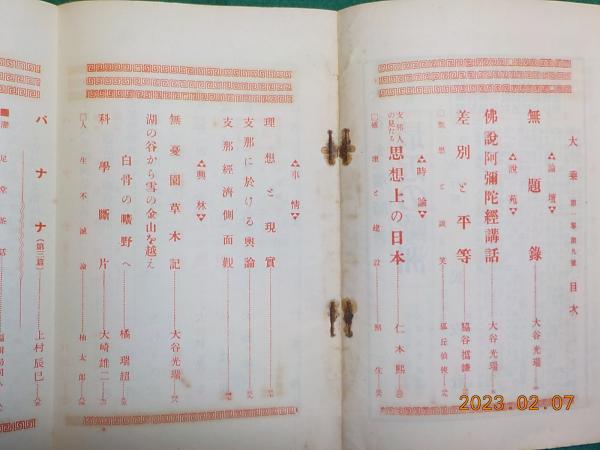 大乘 第一卷第九號 目次
論壇
無題錄 大谷光瑞
說苑
佛說阿彌陀經講話 大谷光瑞
差別と平等 脇谷撝謙
思想と談笑 狐丘仙俠
時論
支那人の見たる 思想上の日本 仁木熙
破壞と建設
事情
理想と現實
支那に於ける輿論
支那經濟側面觀
興林
無憂園草木記 大谷光瑞
湖の谷から雪の金山を越え
白骨の曠野へ 橘瑞超
科學斷片 大崎雄二
人生不滅論 柚太郎
バナナ(第三篇) 上村辰巳
足堂茶話
2023.02.07